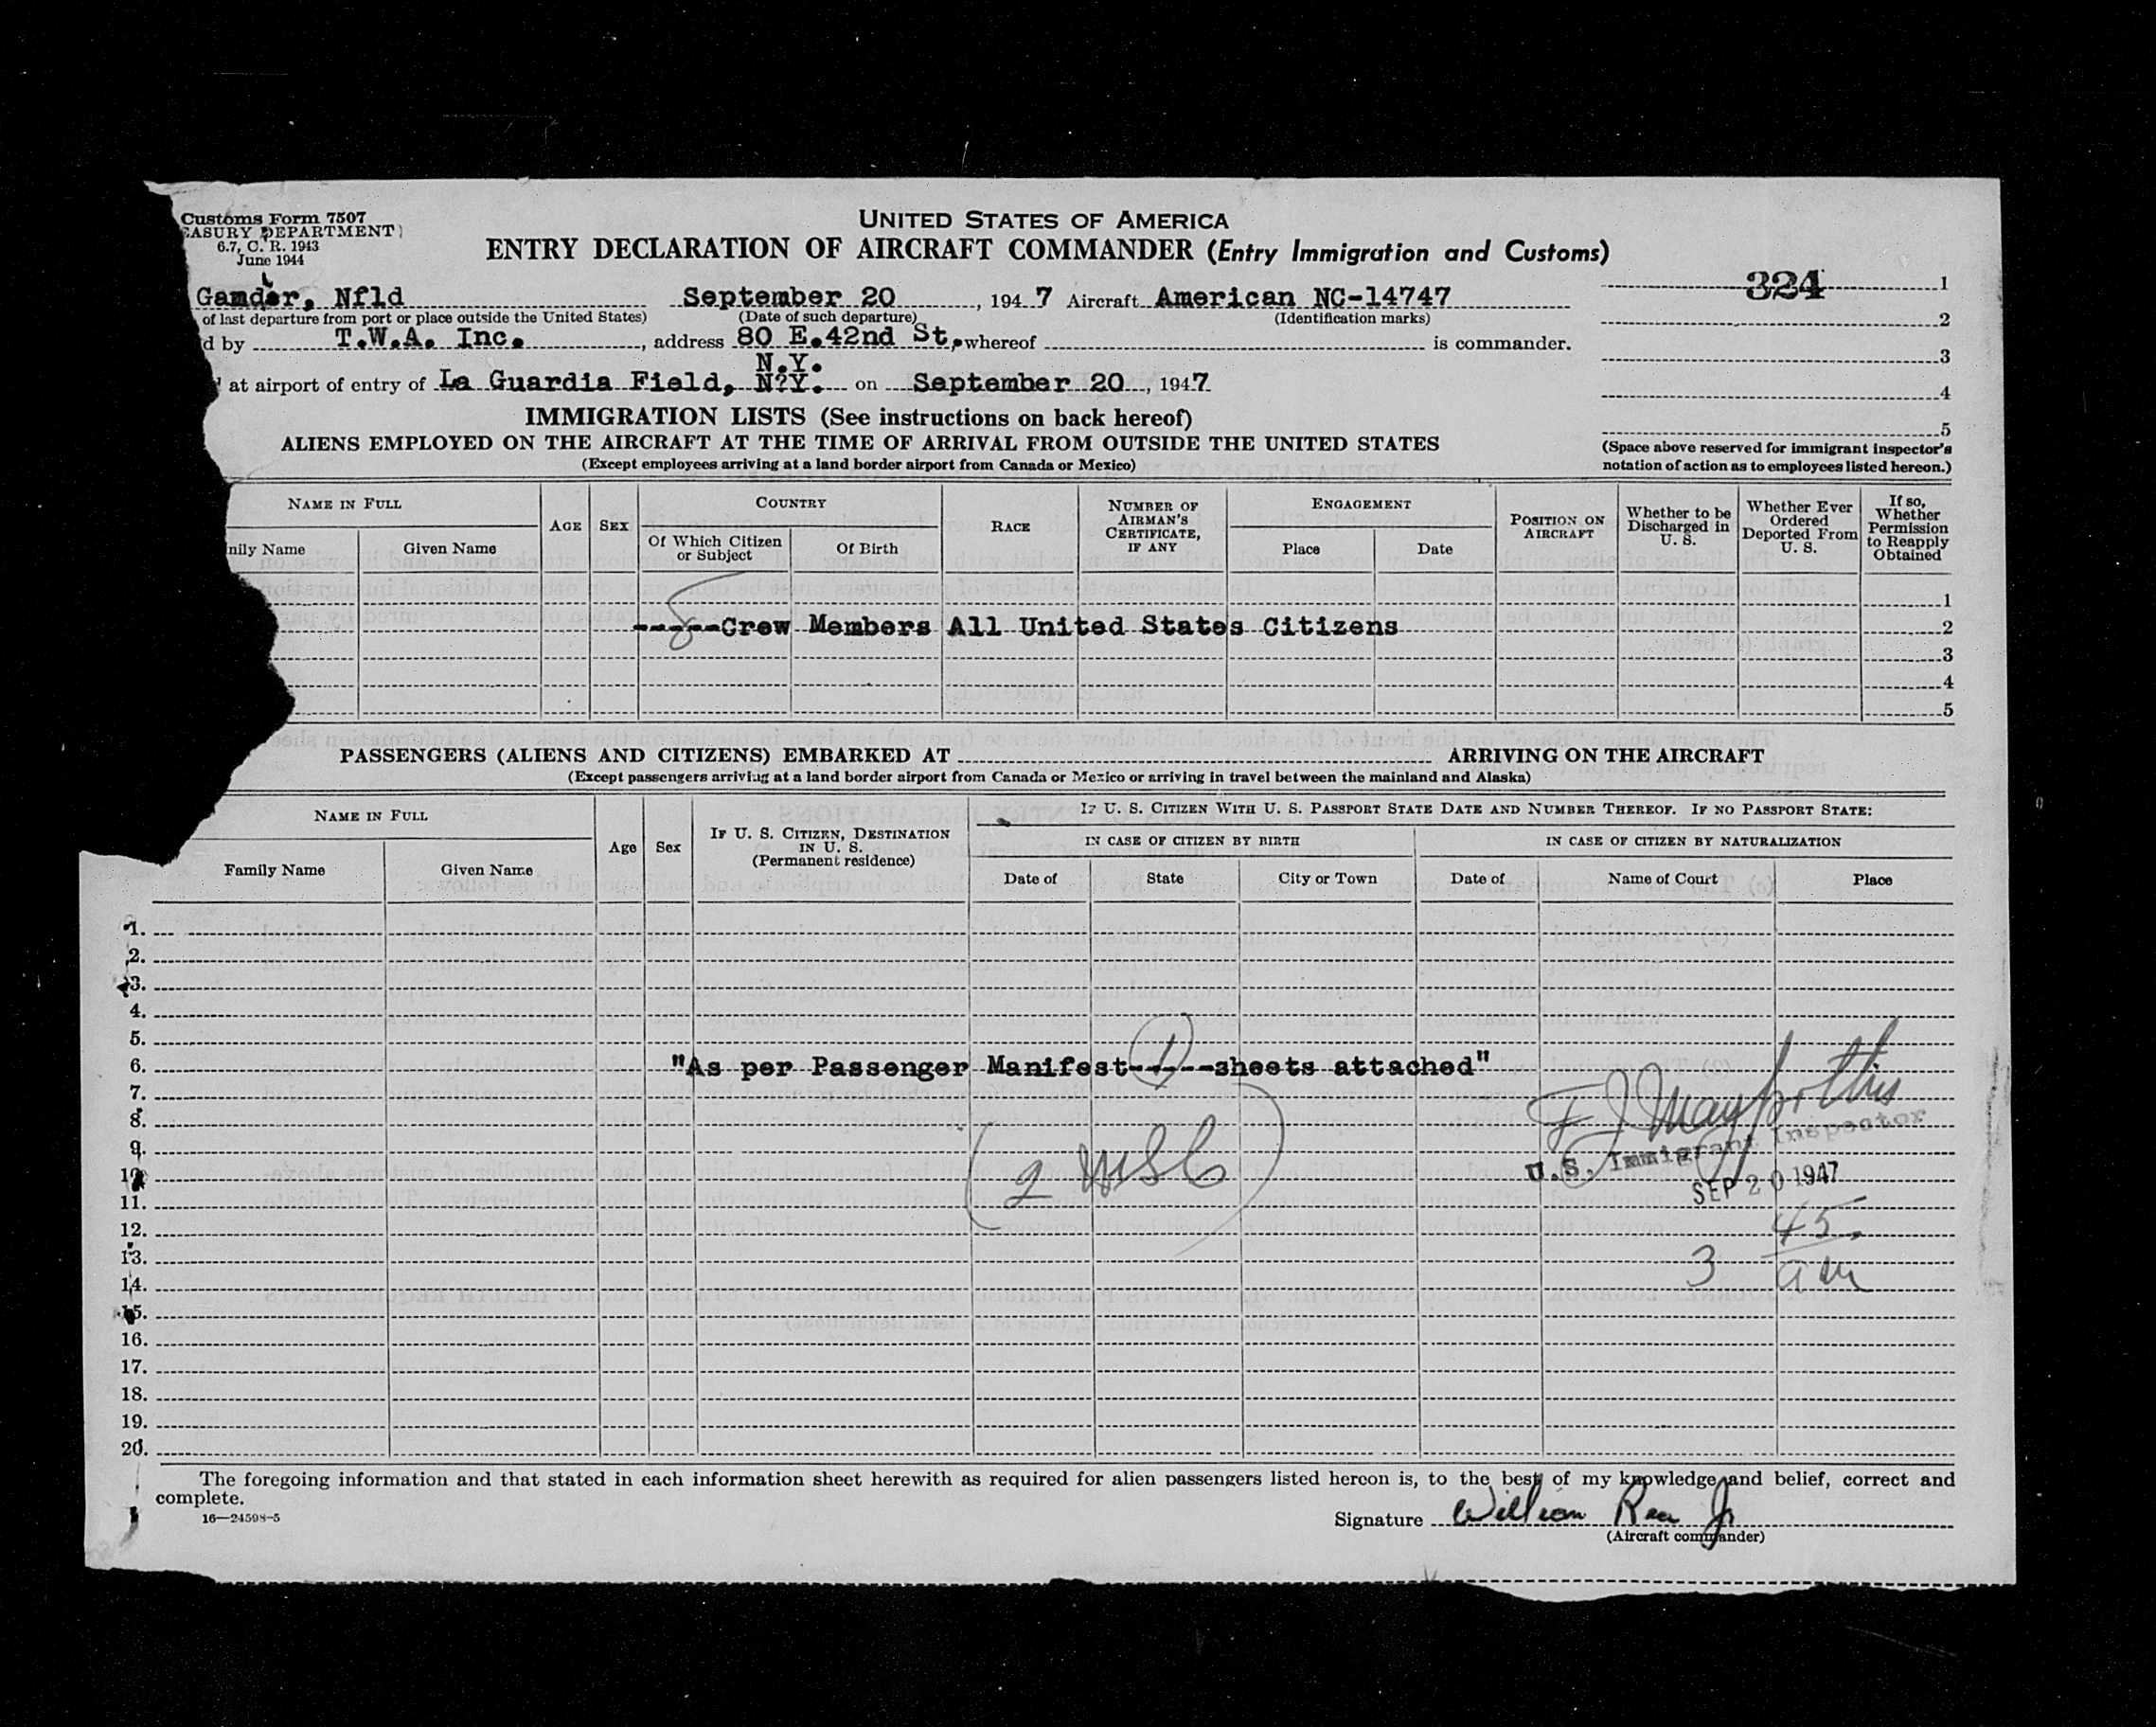 Customs Form 7507
EASURY DEPARTMENT)
6.7, C. R. 1943
June 1944
UNITED STATES OF AMERICA
ENTRY DECLARATION OF AIRCRAFT COMMANDER (Entry Immigration and Customs)
324 1
Gander, Nfld September 20, 1947 Aircraft American NC-14747
of last departure from port or place outside the United States) (Date of such departure) (Identification marks)
2
d by T.W.A. Inc., address 80 E.42nd St, whereof is commander.
3
N.Y.
at airport of entry of La Guardia Field, N?Y. on September 20, 1947
4
IMMIGRATION LISTS (See instructions on back hereof)
5
ALIENS EMPLOYED ON THE AIRCRAFT AT THE TIME OF ARRIVAL FROM OUTSIDE THE UNITED STATES
(Except employees arriving at a land border airport from Canada or Mexico)
(Space above reserved for immigrant inspector's
notation of action as to employees listed hereon.)
NAME IN FULL
nily Name Given Name
AGE SEX
COUNTRY
Of Which Citizen
or Subject
Of Birth
RACE
NUMBER OF
AIRMAN'S
CERTIFICATE,
IF ANY
ENGAGEMENT
Place Date
POSITION ON
AIRCRAFT
Whether to be
Discharged in
U. S.
Whether Ever
Ordered
Deported From
U. S.
If so,
Whether
Permission
to Reapply
Obtained
1
8
-----Crew Members All United States Citizens 2
3
4
5
PASSENGERS (ALIENS AND CITIZENS) EMBARKED AT ARRIVING ON THE AIRCRAFT
(Except passengers arriving at a land border airport from Canada or Mexico or arriving in travel between the mainland and Alaska)
NAME IN FULL
Family Name Given Name
Age Sex
IF U. S. CITIZEN, DESTINATION
IN U. S.
(Permanent residence)
IF U. S. CITIZEN WITH U. S. PASSPORT STATE DATE AND NUMBER THEREOF. IF NO PASSPORT STATE:
IN CASE OF CITIZEN BY BIRTH IN CASE OF CITIZEN BY NATURALIZATION
Date of State City or Town Date of Name of Court Place
1.
2.
3.
4.
5.
6. "As per Passenger Manifest--1---sheets attached"
7.
8. F J Mayforthis
9. U.S. Immigrant Inspector
10. (2 USC)
SEP 20 1947
11.
12. 45
13. 3 am
14.
15.
16.
17.
18.
19.
20.
The foregoing information and that stated in each information sheet herewith as required for alien passengers listed hereon is, to the best of my knowledge and belief, correct and
complete.
16—24598-5
Signature William Rea Jr
(Aircraft commander)